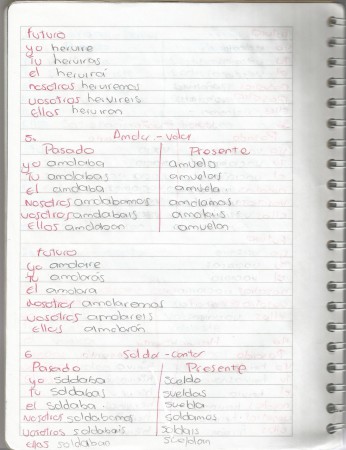 Futuro
yo hervire
Tu herviras
el hervira
nosotros herviremos
vosotros hervireis
Ellos herviran
5. Amolar - volar
Pasado Presente
yo amolaba amuelo
Tu amolabas amuelas
El amolaba amuela
Nosotros amolabamos amolamos
vosotros amolabais amolais
Ellos amolaban amuelan
Futuro
yo amolare
Tu amolaras
El amolara
Nosotros amolaremos
vosotros amolareis
Ellos amolaran
6 Soldar - contar
Pasado Presente
yo soldaba sueldo
Tu soldabas sueldas
El soldaba suelda
Nosotros soldabamos soldamos
vosotros soldabais soldais
Ellos soldaban sueldan